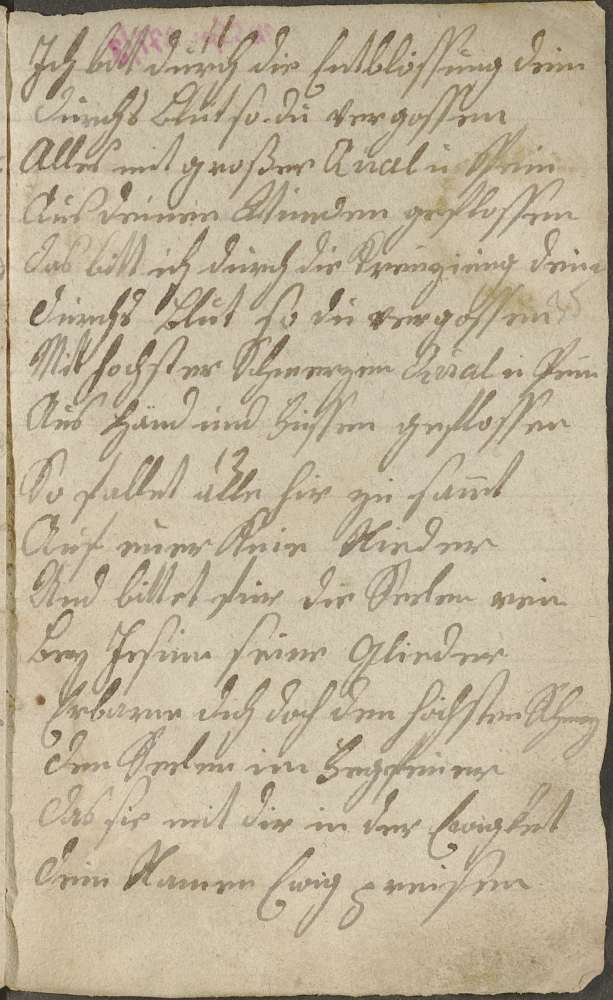 11
Ich bitt durch die Entblössung dein
durchs Blut so du vergossen
Alles mit großer Qual u Pein
Aus deinen Wunden geflossen
das bitt ich durch die Kreuzigung dein
durchs Blut so du vergossen
Mit höchster Schmerzen Qual u Pein
Aus Händ und Füssen geflossen
12
So fallet alle hir zu samt
Auf euer Knie Nieder
Und bittet für die Seelen rein
Bey Jesum seine Glieder
Erbarme dich doch den höchsten Schmerz
den Seelen im Fegefeuer
das sie mit dir in der Ewigkeit
dein Namen Ewig preissen